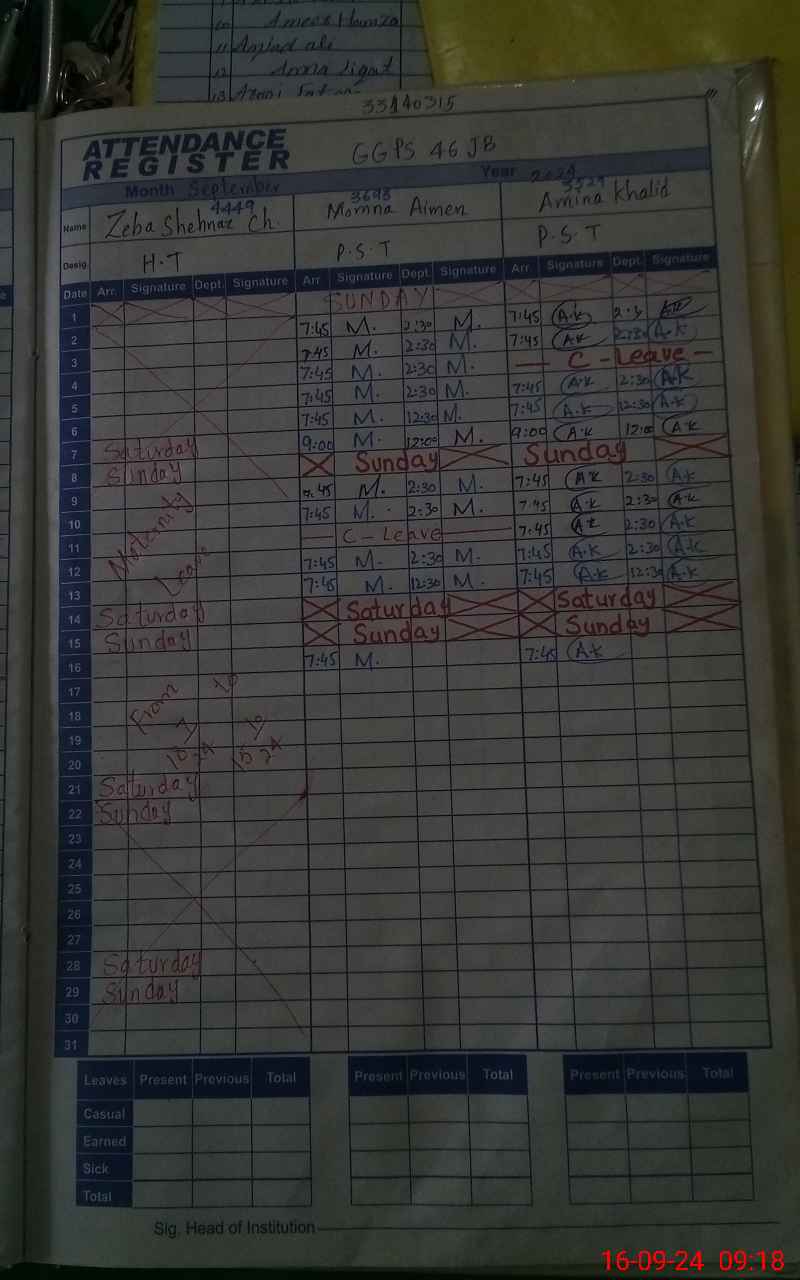 10 Ameer Hamza
11 Amjad ali
12 Amna liqat
13
33140315
ATTENDANCE REGISTER
GGPS 46 JB
Month September Year 2024
Name 4449 Zeba Shehnaz Ch. 3693 Momna Aimen 3529 Amina Khalid
Desig. H.T P.S.T P.S.T
Date Arr. Signature Dept. Signature Arr Signature Dept. Signature Arr. Signature Dept. Signature
1 SUNDAY
2 7:45 M. 2:30 M. 7:45 A.k 2:3 A.k
3 7:45 M. 2:30 M. 7:45 A.k 2:30 A.k
4 7:45 M. 2:30 M. C - Leave
5 7:45 M. 2:30 M. 7:45 A.k 2:30 A.k
6 7:45 M. 12:30 M. 7:45 A.k 12:30 A.k
7 Saturday 9:00 M. 12:00 M. 9:00 A.k 12:00 A.k
8 Sunday Sunday Sunday
9 7:45 M. 2:30 M. 7:45 A.k 2:30 A.k
10 7:45 M. 2:30 M. 7:45 A.k 2:30 A.k
11 C - Leave 7:45 A.k 2:30 A.k
12 7:45 M. 2:30 M. 7:45 A.k 2:30 A.k
13 7:45 M. 12:30 M. 7:45 A.k 12:30 A.k
Maternity
Leave
14 Saturday Saturday Saturday
15 Sunday Sunday Sunday
16 7:45 M. 7:45 A.k
17
18
19
20
From to
21 Saturday
22 Sunday
23
24
25
26
27
28 Saturday
29 Sunday
30
31
Leaves Present Previous Total Present Previous Total Present Previous Total
Casual
Earned
Sick
Total
Sig. Head of Institution
16-09-24 09:18